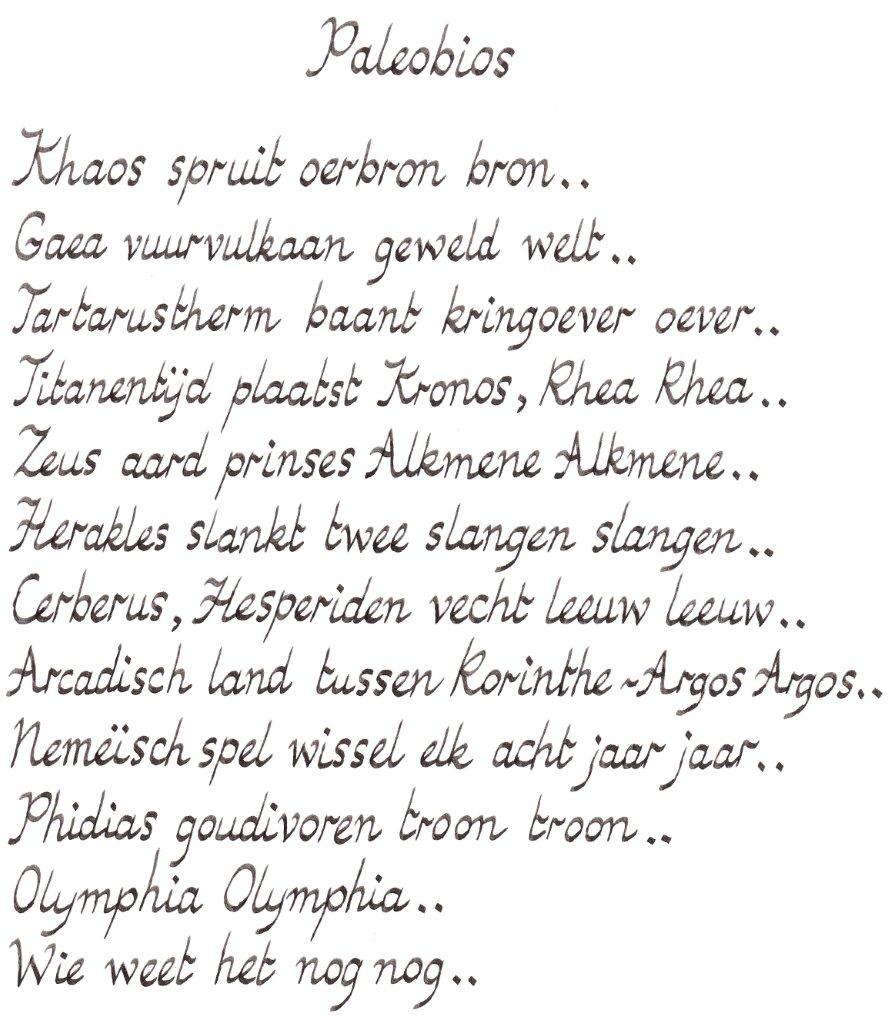 Paleobios
Khaos spruit oerbron bron..
Gaea vuurvulkaan geweld welt..
Tartarustherm baant kringoever oever..
Titanentijd plaatst Kronos, Rhea Rhea..
Zeus aard prinses Alkmene Alkmene..
Herakles slankt twee slangen slangen..
Cerberus, Hesperiden vecht leeuw leeuw..
Arcadisch land tussen Korinthe ~ Argos Argos..
Nemeïsch spel wissel elk acht jaar jaar..
Phidias goudivoren troon troon..
Olymphia Olymphia..
Wie weet het nog nog..